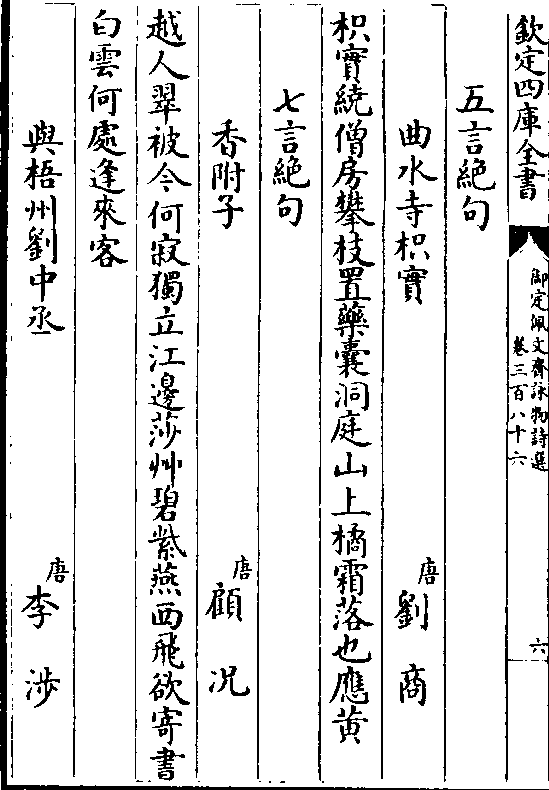 欽定四庫全書
御定佩文齋詠物詩選
卷三百八十六
六
五言絶句
曲水寺枳實
唐
劉商
枳實繞僧房攀枝置藥囊洞庭山上橘霜落也應黄
七言絶句
香附子
唐
顧况
越人翠被今何寂獨立江邊莎艸碧紫燕西飛欲寄書
白雲何處逢來客
與梧州劉中丞
唐
李涉